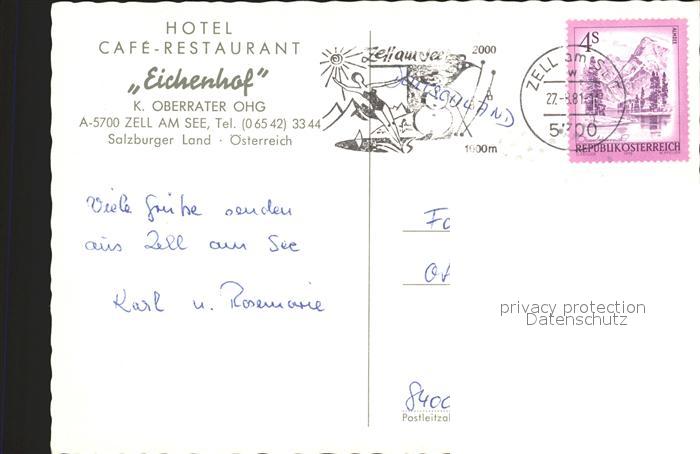 HOTEL
CAFÉ-RESTAURANT
„Eichenhof"
K. OBERRATER OHG
A-5700 ZELL AM SEE, Tel. (0 65 42) 33 44
Salzburger Land · Österreich
Zell am See
2000
1000m
DEUTSCHLAND
ZELL am SEE
27.-8.81
5700
4S
ALMSEE
REPUBLIK ÖSTERREICH
Viele Grüße senden
aus Zell am See
Karl u. Rosemarie
Fa
privacy protection
Datenschutz
8400
Postleitzal